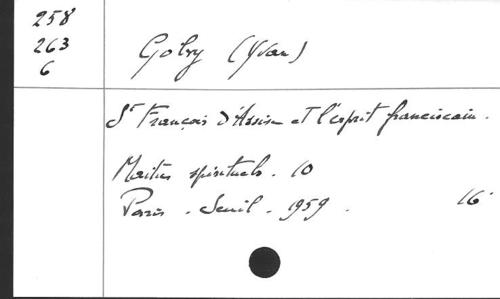 258
263
6
Gobry (Yvan)
St François d'Assise et l'esprit franciscain.
Maîtres spirituels. 10
Paris. Seuil. 1959. 16°